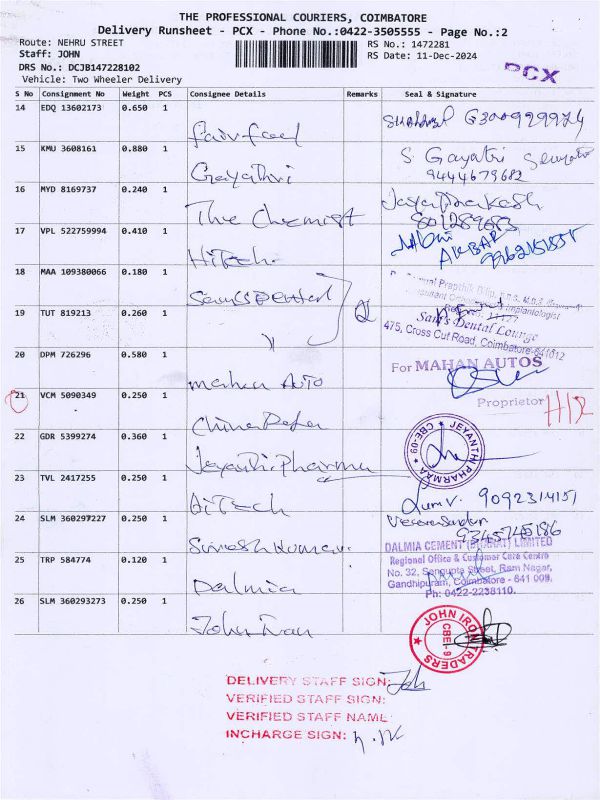 THE PROFESSIONAL COURIERS, COIMBATORE
Delivery Runsheet - PCX - Phone No.:0422-3505555 - Page No.:2
Route: NEHRU STREET
RS No.: 1472281
Staff: JOHN
RS Date: 11-Dec-2024
DRS No.: DCJB147228102
PCX
Vehicle: Two Wheeler Delivery
S No Consignment No Weight PCS Consignee Details Remarks Seal & Signature
14 EDQ 13602173 0.650 1
15 KMU 3608161 0.880 1 Gayathri S Gayatri
9444679682
16 MYD 8169737 0.240 1 The Chemist Jayaprakash
17 VPL 522759994 0.410 1 HiTech AKBAR
18 MAA 109380066 0.180 1 Sam's Dental
19 TUT 819213 0.260 1 Sam's Dental Lounge
475, Cross Cut Road, Coimbatore-641012
20 DPM 726296 0.580 1 Mahan Auto For MAHAN AUTOS
Proprietor
21 VCM 5090349 0.250 1 China
22 GDR 5399274 0.360 1 Jeyanthi Pharma JEYANTH PHARMAA CBE-09
23 TVL 2417255 0.250 1 HiTech 9092314151
24 SLM 360297227 0.250 1 Suresh Kumar 9345745186
25 TRP 584774 0.120 1 Dalmia DALMIA CEMENT (BHARAT) LIMITED
Regional Office & Customer Care Centre
No. 32, Sengupta Street, Ram Nagar,
Gandhipuram, Coimbatore - 641 009.
Ph: 0422-2238110.
26 SLM 360293273 0.250 1 John Iron JOHN IRON TRADERS CBE-9
DELIVERY STAFF SIGN: Joh
VERIFIED STAFF SIGN:
VERIFIED STAFF NAME
INCHARGE SIGN: